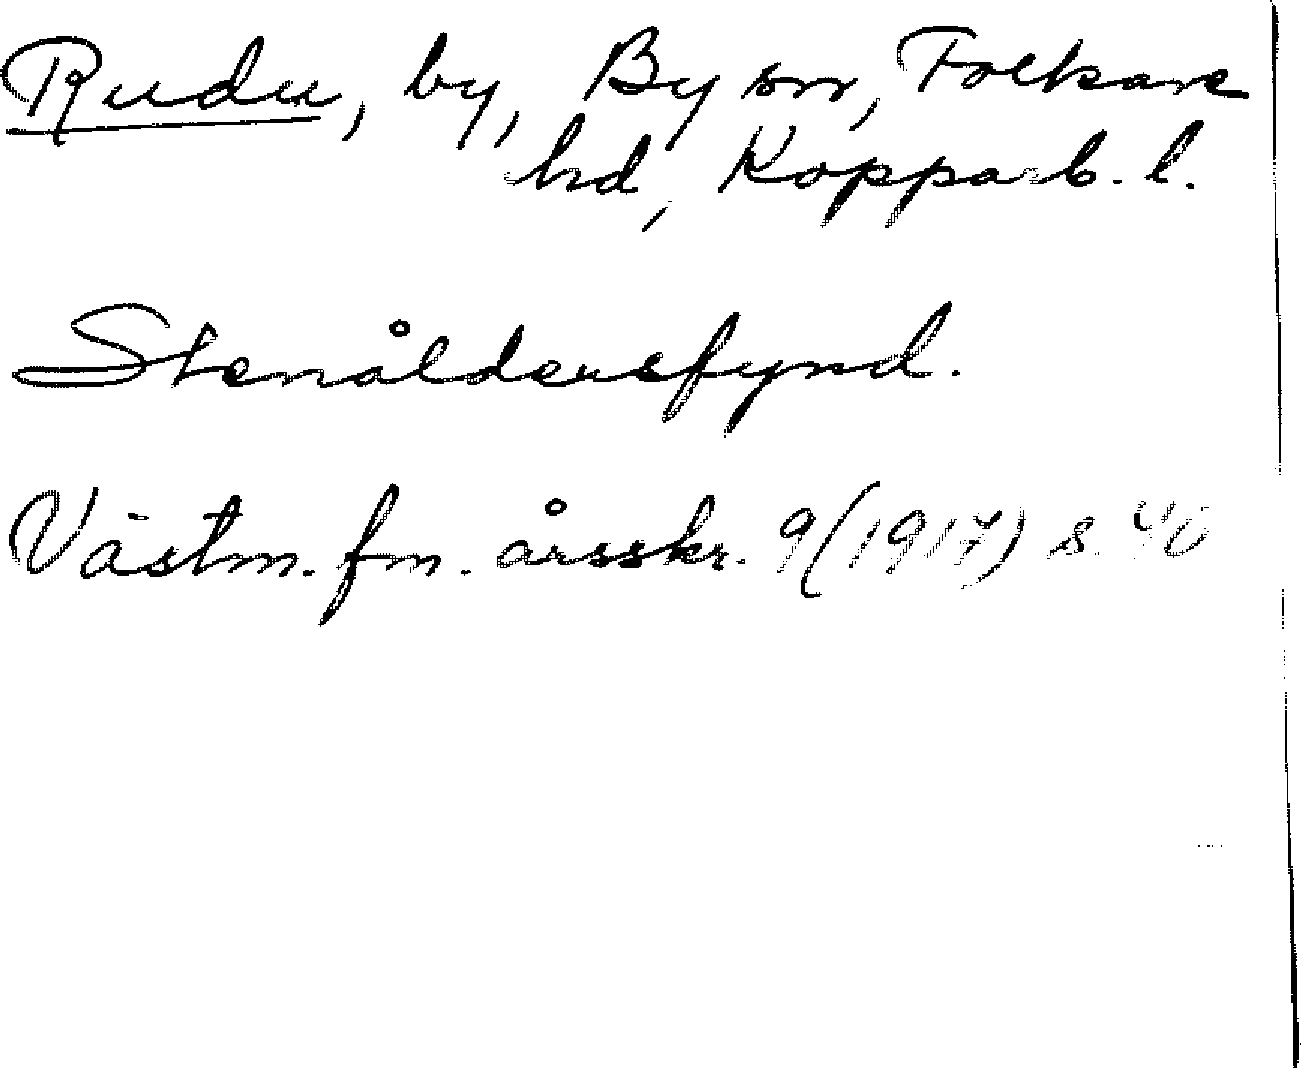 Rudu, by, By sn, Folkare
hd, Kopparb. l.
Stenåldersfynd.
Västm. fm. årsskr. 9 (1917) s. 40